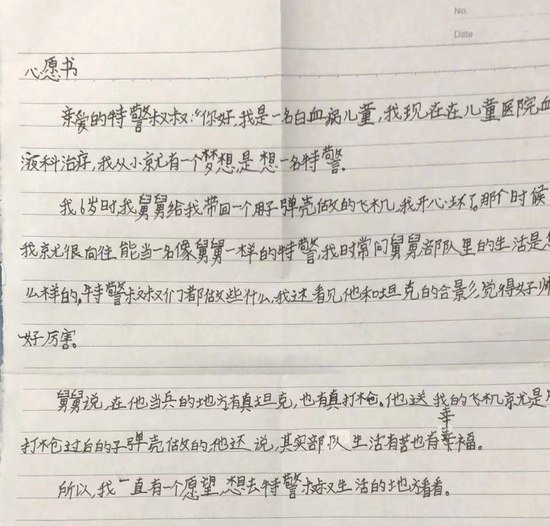 No.
Date
心愿书
亲爱的特警叔叔:"你好,我是一名白血病儿童,我现在在儿童医院血
液科治疗,我从小就有一个梦想,是想一名特警。
我6岁时我舅舅给我带回一个用子弹壳做的飞机,我开心坏了。那个时候
我就很向往能当一名像舅舅一样的特警,我时常问舅舅部队里的生活是怎
么样的,特警叔叔们都做些什么,我还看见他和坦克的合影,觉得好帅
好厉害。
舅舅说,在他当兵的地方有真坦克,也有真打枪。他送我的飞机就是用
打枪过后的子弹壳做的,他还说,其实部队生活有苦也有幸福。
所以,我一直有一个愿望,想去特警叔叔生活的地方看看。